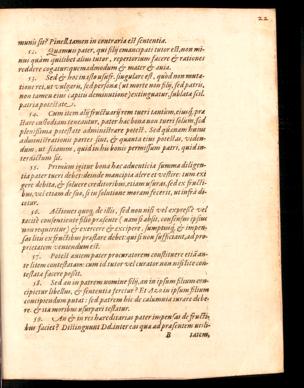 22
munis sit? Pinell. tamen in contraria est sententia.
52. Quamuis pater, qui filij emancipati tutor est, non mi-
nus quàm quilibet alius tutor, repertorium facere & rationes
reddere cogatur: quemadmodum & mater & auia.
53. Sed & hoc in isto usufr. singulare est, quòd non muta-
tione rei, ut vulgaris, sed persona (ut morte non filij, sed patris,
non tamen eius capitis deminutione) extinguatur, sublata scil.
patria potestate.
54. Cum item alij fructuarij rem tueri tantùm, eiusq́; pra
stare custodiam teneantur, pater hac bona non tueri solum, sed
plenissima potestate administrare potest. Sed quànam huius
administrationis partes sint, & quanta eius potestas, viden-
dum, ut sciamus, quid in his bonis permissum patri, quid in-
terdictum sit.
55. Primùm igitur bona hac aduenticia summa diligen-
tia pater tueri debet: deinde mancipia alere et vestire: tum exi
gere debita, & soluere creditoribus, etiam usuras, sed ex fructi-
bus, vel etiam de suo, si in solutione moram fecerit, ut infrà di-
cetur.
56. Actiones quoq́; de illis, sed non nisi vel expressè vel
tacitè consentiente filio praesente (nam si absit, consensus ipsius
non requiritur) & exercere & excipere, sumptusq́; & impen-
sas litis ex fructibus praestare debet: qui si non sufficiant, ad pro-
prietatem veniendum est.
57. Potest autem pater procuratorem constituere etiā an-
te litem contestatam: cum id tutor vel curator non nisi lite con-
testata facere possit.
58. Sed an in patrem nomine filij, an in ipsum filium con-
cipietur libellus, & sententia feretur? Et Azo in ipsum filium
concipiendum putat: sed patrem hic de calumnia iurare debe-
re. & ita moribus usurpari testatur.
59. An & in res hereditarias pater impensas de fructi-
bus faciet? Distinguunt Dd. inter eas qua ad praesentem utili-
B tatem,